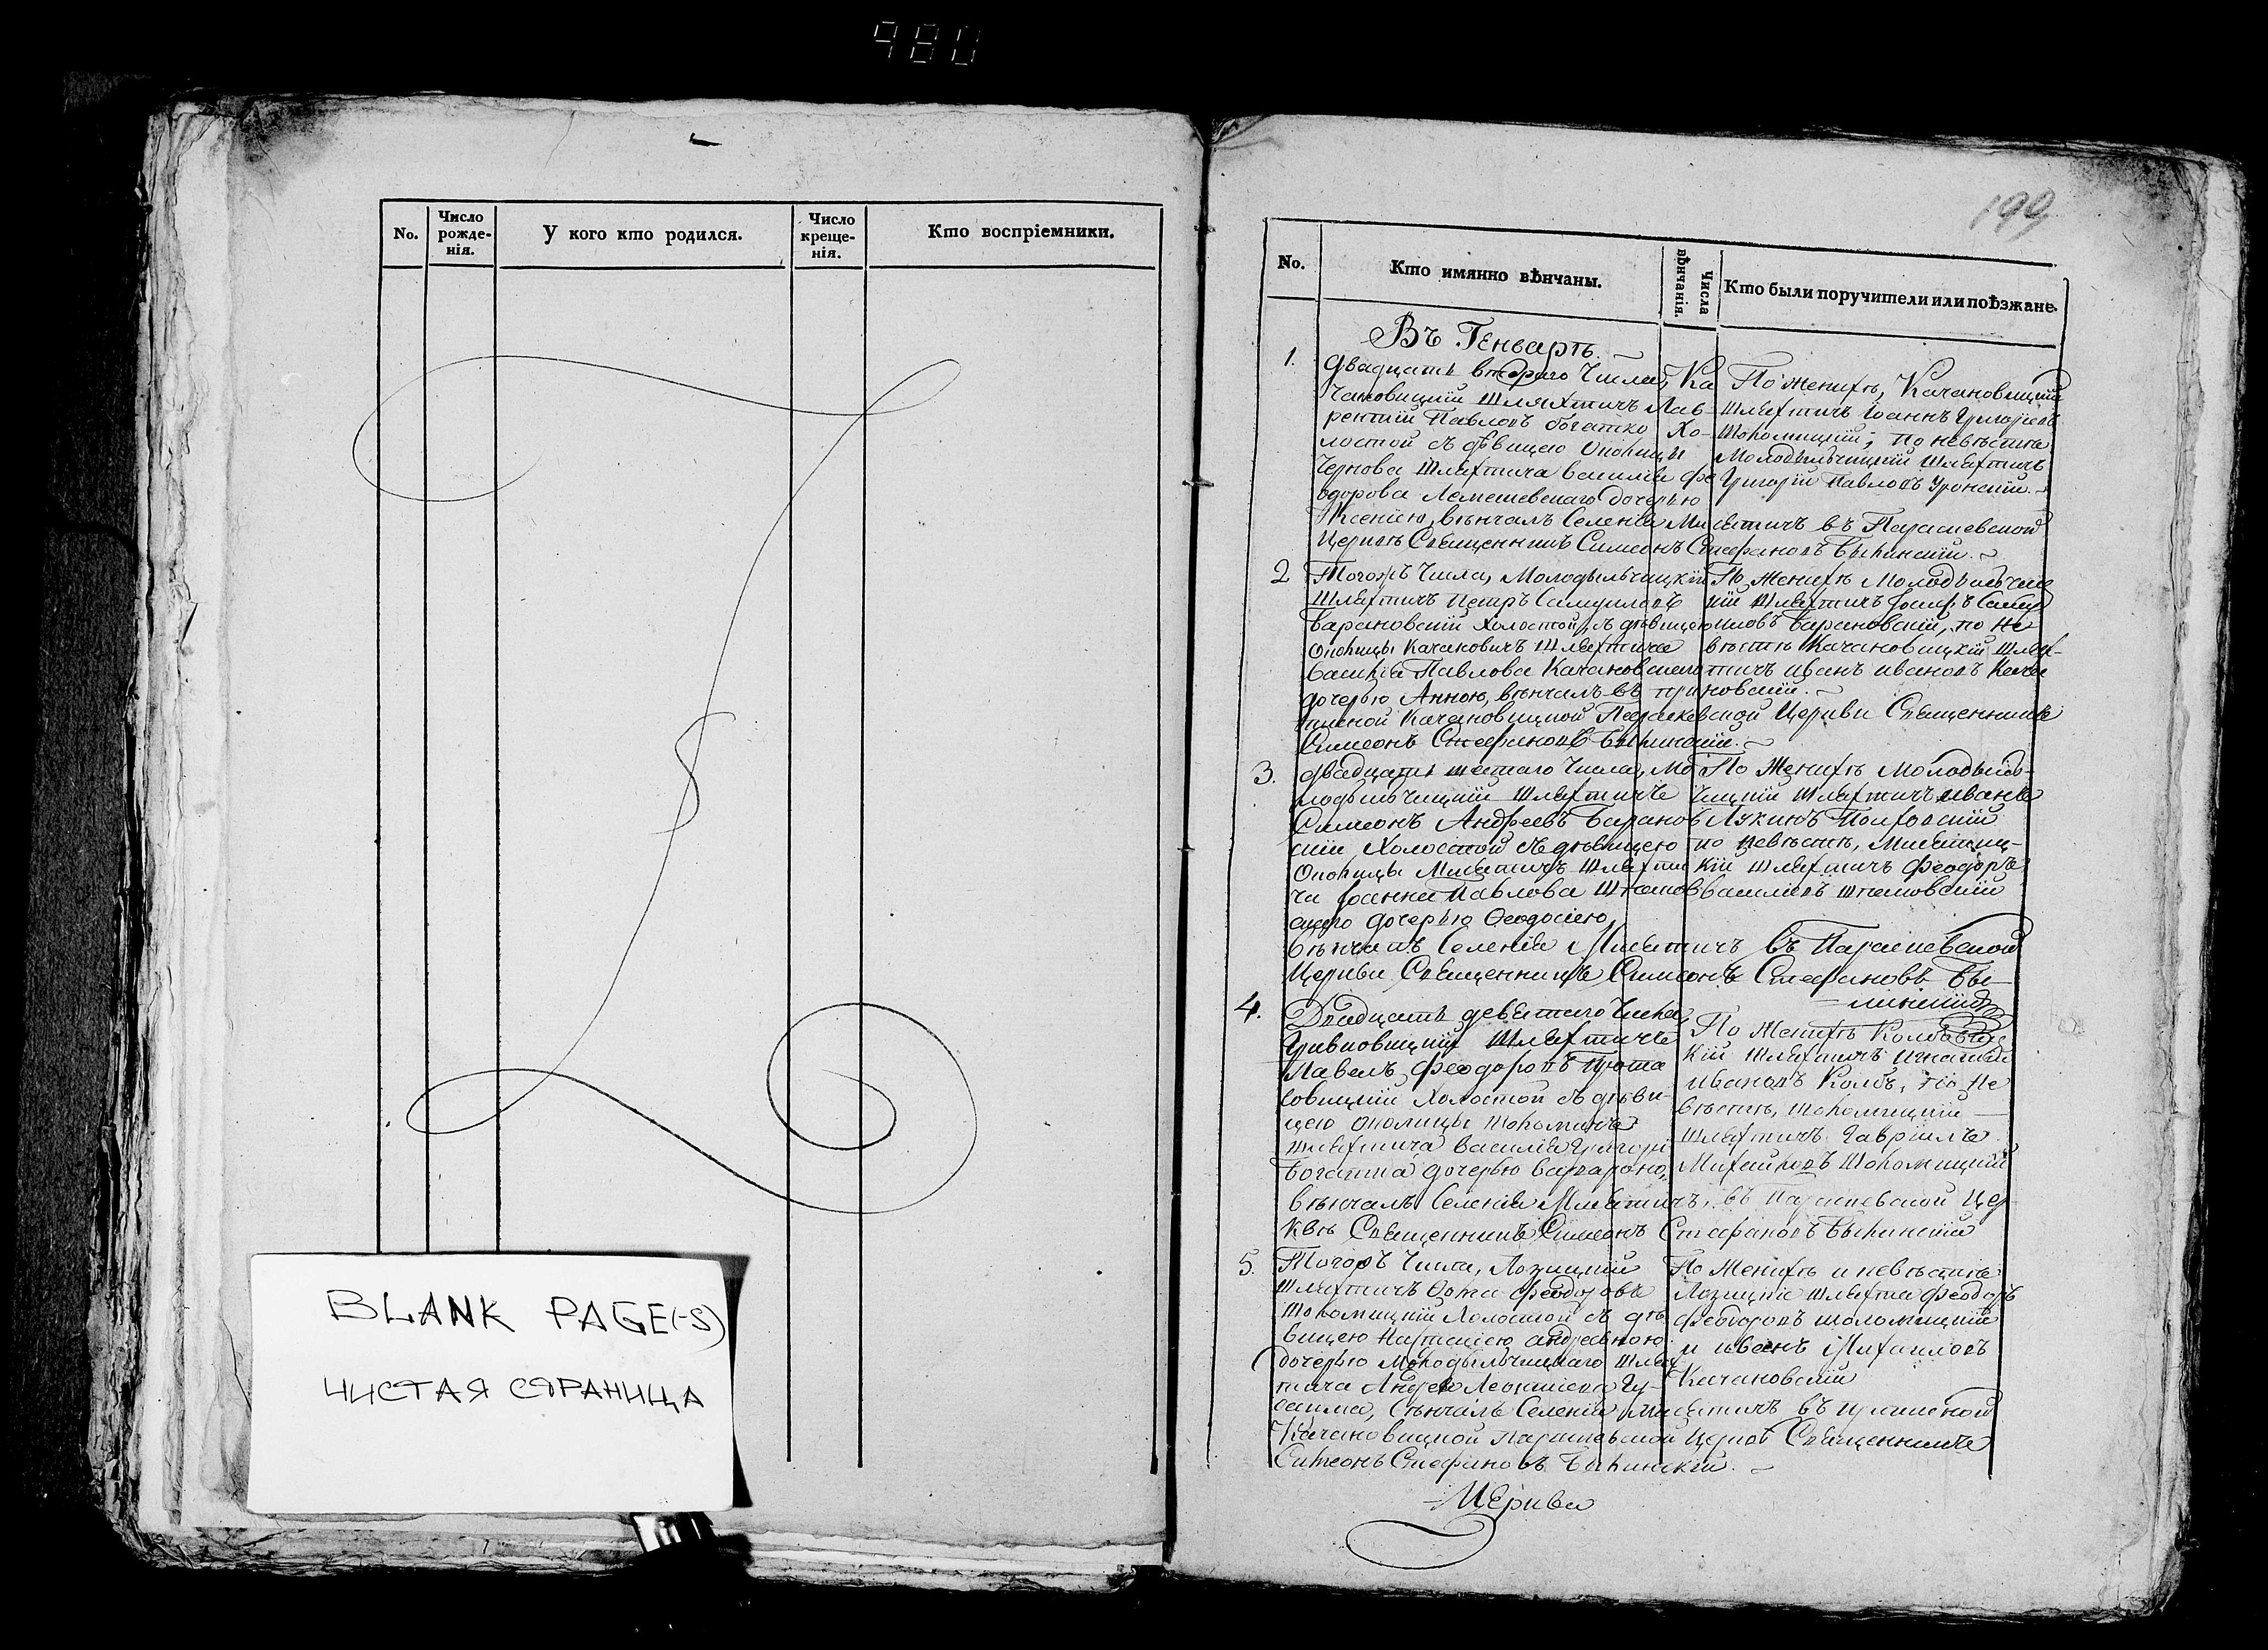 980
No.
Число рожде-нія.
У кого кто родился.
Число креще-нія.
Кто воспріемники.
BLANK PAGE(-S)
ЧИСТАЯ СТРАНИЦА
199
No.
Кто имянно вѣнчаны.
Числа вѣнчанія.
Кто были поручители или поѣзжане.
Въ Генварѣ.
1.
Двадцать втораго Числа, Ка
чановицкій шляхтичъ Лав-
рентій Павловъ Богатко Хо-
лостой съ дѣвицею Околицы
Чернова Шляхтича Василія Фе
одорова Лемешевскаго дочерью
Ксеніею, вѣнчалъ Селенія Мисятичъ въ Параскевской
Церквѣ Священникъ Симеонъ Стефановъ Былинскій.
По Женихѣ, Качановицкій
Шляхтичъ Іоаннъ Григорьевъ
Шоломицкій; по невѣстѣ
Молодѣльчицкій Шляхтичъ
Григорій Павловъ
2
Тогожъ Числа, Молодѣльчицкій
Шляхтичъ Петръ Самуиловъ
Барановскій Холостой, съ дѣвицею
Околицы Качановичъ Шляхтича
Василія Павлова Качановскаго
дочерью Анною, вѣнчалъ въ при
писной Качановицкой Параскевской Церкви Священникъ
Симеонъ Стефановъ Былинскій.
По Женихѣ Молодѣльчиц
кій Шляхтичъ Іосифъ Саму
иловъ Барановскій, по Не
вѣстѣ Качановицкій Шлях-
тичъ Иванъ Ивановъ Кача
новскій.
3.
Двадцать шестаго Числа, Мо
лодѣльчицкій Шляхтичъ
Симеонъ Андреевъ Баранов
скій Холостой съ дѣвицею
Околицы Мисятичъ Шляхти
ча Іоанна Павлова
скаго дочерью Ѳеодосіею,
вѣнчалъ Селенія Мисятичъ въ Параскевской
Церкви Священникъ Симеонъ Стефановъ Бы-
линскій
По Женихѣ Молодѣль-
чицкій Шляхтичъ Иванъ
Лукинъ
по Невѣстѣ, Мисятиц-
кій Шляхтичъ Феодоръ
Васильевъ
4.
Двадцать девятаго Числа,
Гривковицкій Шляхтичъ
Павелъ Феодоровъ Прота
совицкій Холостой съ дѣви-
цею околицы
Шляхтича Василія Григорь
Богатка дочерью Варварою,
вѣнчалъ Селенія Мисятичъ, въ Параскевской Цер-
квѣ Священникъ Симеонъ Стефановъ Былинскій
По Женихѣ Колбовиц
кій Шляхтичъ Игнатій
Ивановъ Колбъ, по Не
вѣстѣ, Шоломицкій
Шляхтичъ Гавріилъ
Михайловъ Шоломицкій
5.
Тогожъ Числа, Лозицкій
Шляхтичъ Ѳома Феодоровъ
Шоломицкій Холостой съ дѣ
вицею Настасіею Андреевною
дочерью Молодѣльчицкаго Шлях
тича Андрея
вѣнчалъ Селенія Мисятичъ въ приписной
Качановицкой Параскевской Церкв Священникъ
Симеонъ Стефановъ Былинскій.
По Женихѣ и невѣстѣ
Лозицкіе Шляхта Феодоръ
Феодоровъ Шоломицкій
и Иванъ Михайловъ
Качановскій
Церкви